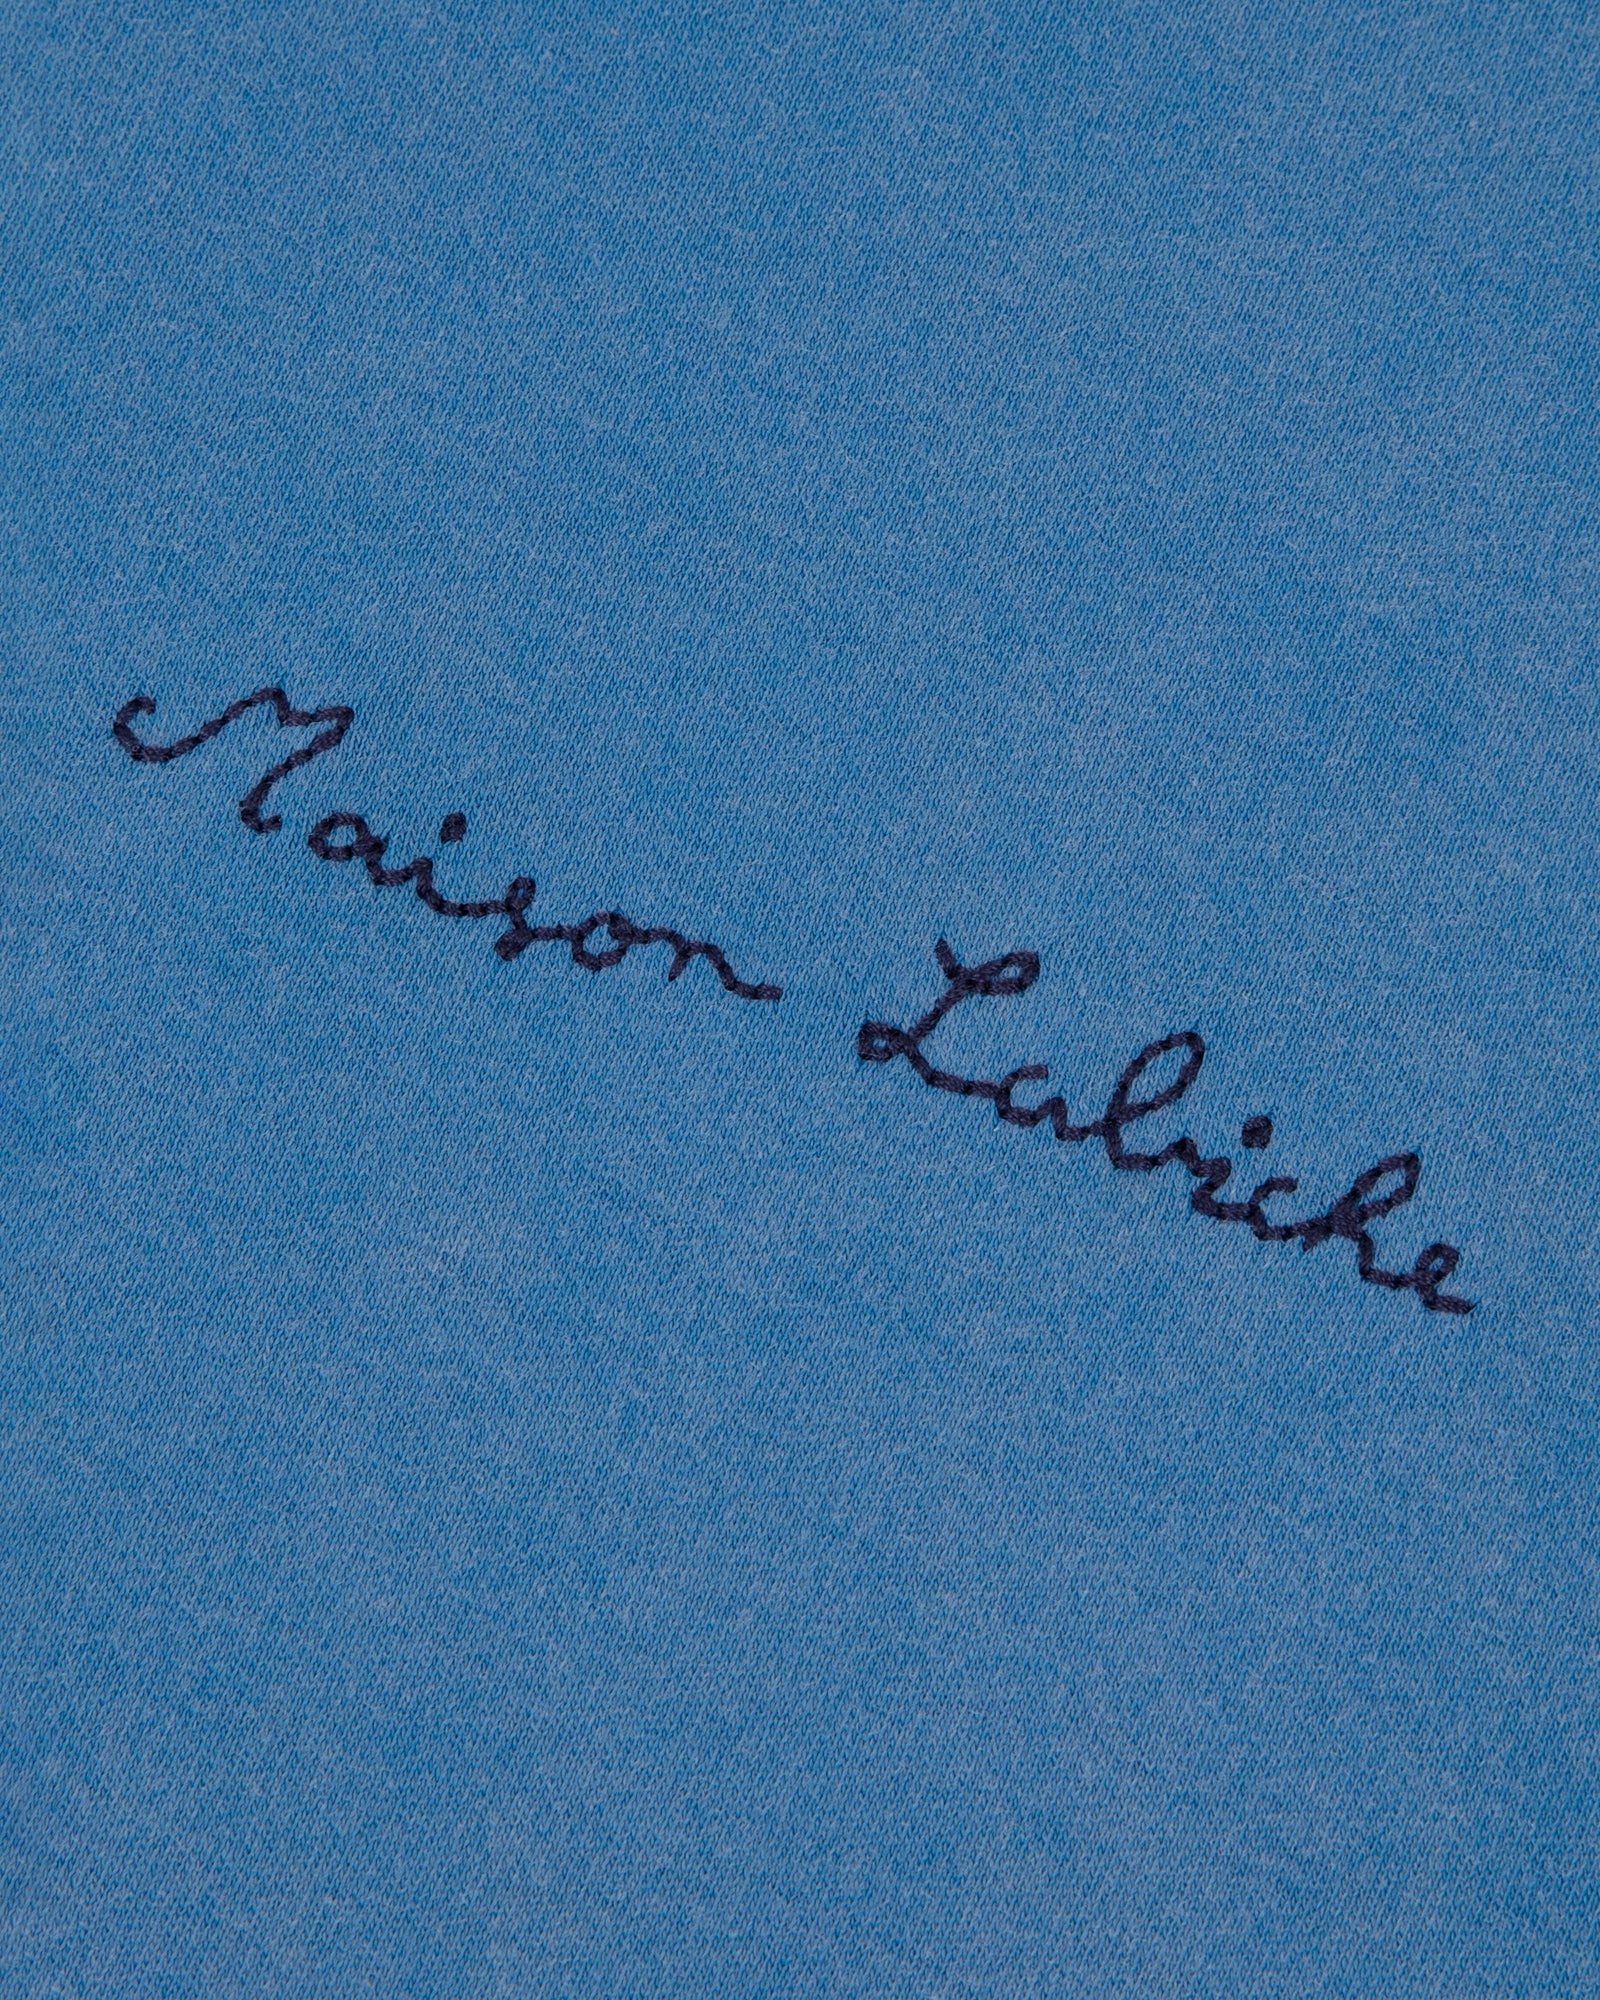 Maison Labiche